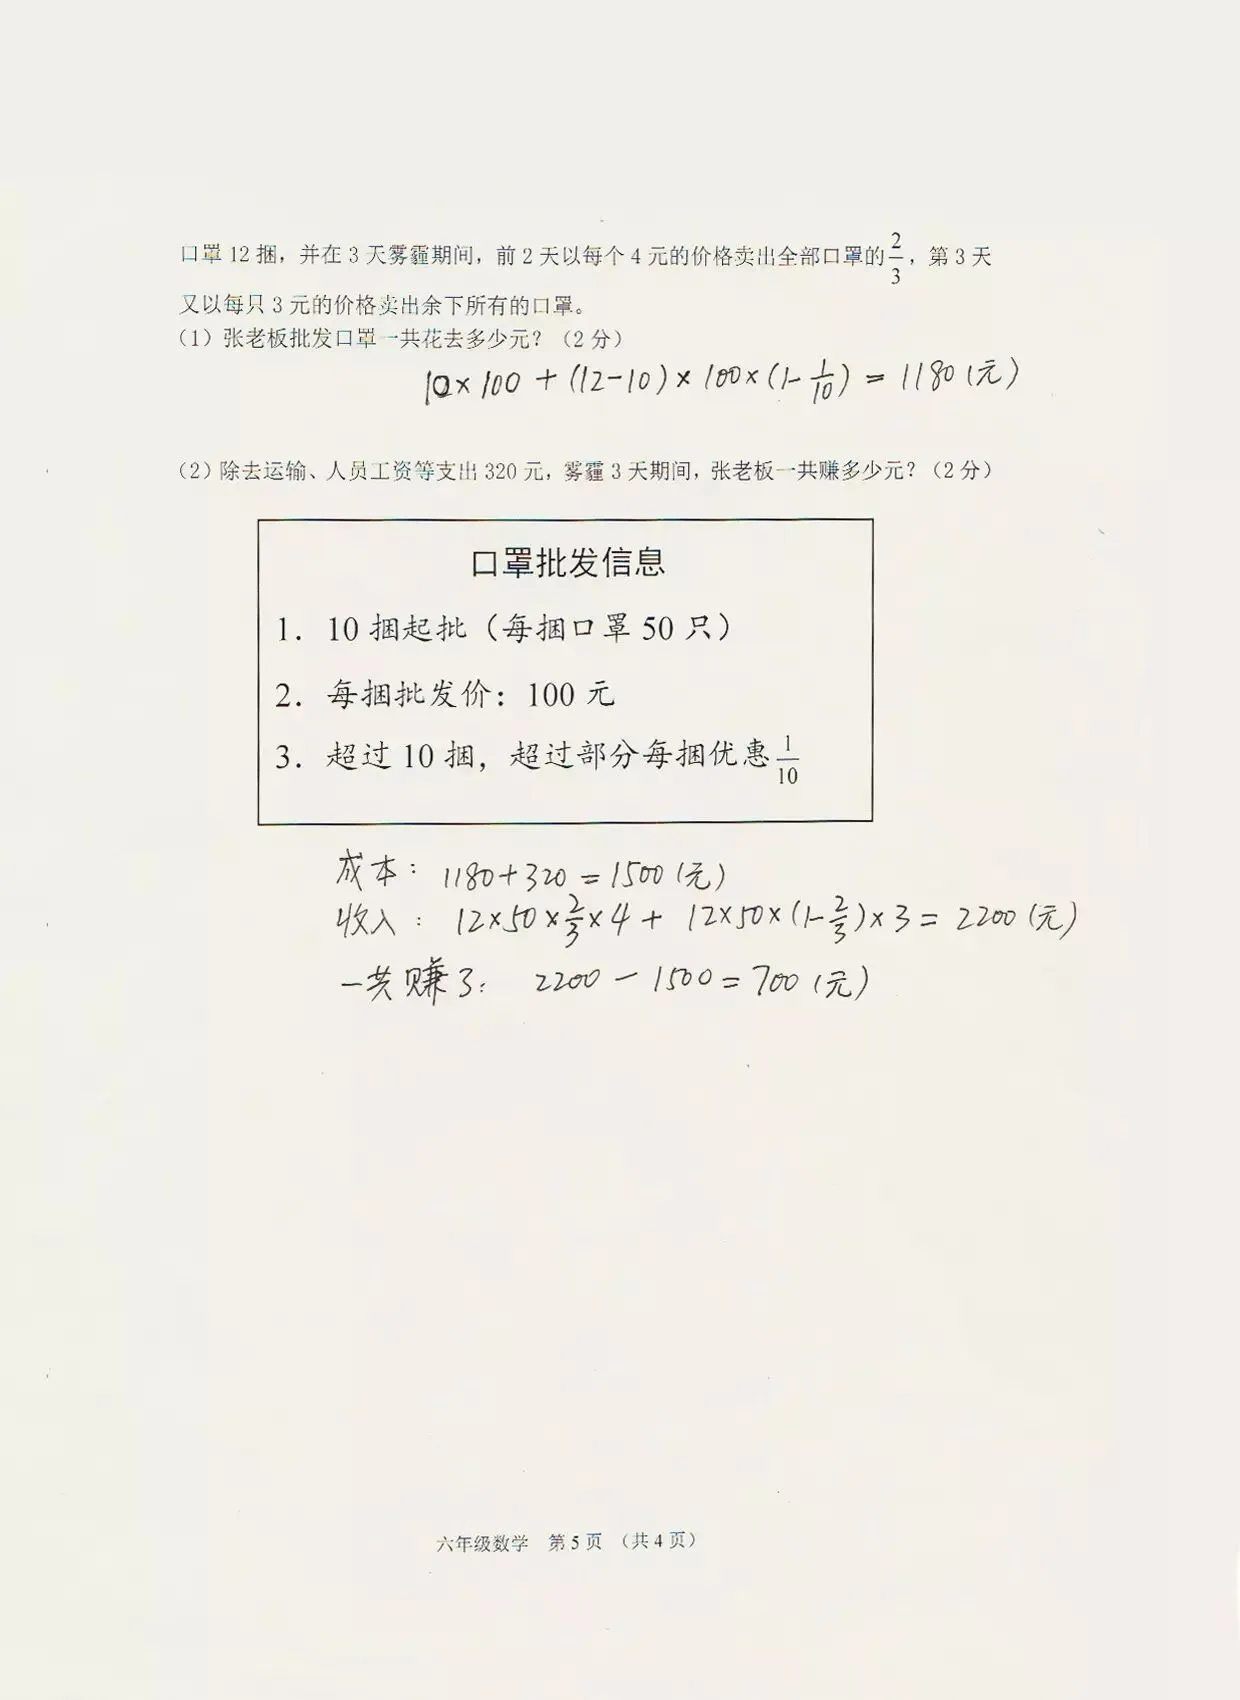 口罩12捆，并在3天雾霾期间，前2天以每个4元的价格卖出全部口罩的2/3，第3天
又以每只3元的价格卖出余下所有的口罩。
（1）张老板批发口罩一共花去多少元？（2分）
10×100+(12-10)×100×(1-1/10)=1180(元)
（2）除去运输、人员工资等支出320元，雾霾3天期间，张老板一共赚多少元？（2分）
口罩批发信息
1．10捆起批（每捆口罩50只）
2．每捆批发价：100元
3．超过10捆，超过部分每捆优惠1/10
成本：1180+320=1500(元)
收入：12×50×2/3×4+12×50×(1-2/3)×3=2200(元)
一共赚了：2200-1500=700(元)
六年级数学 第5页 （共4页）